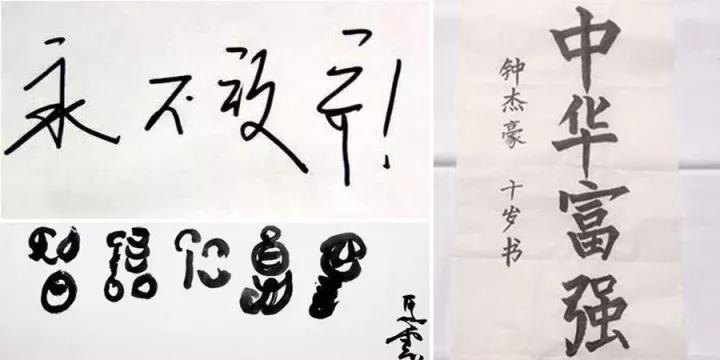 永不放弃！
馬雲
中华富强
钟杰豪 十岁书